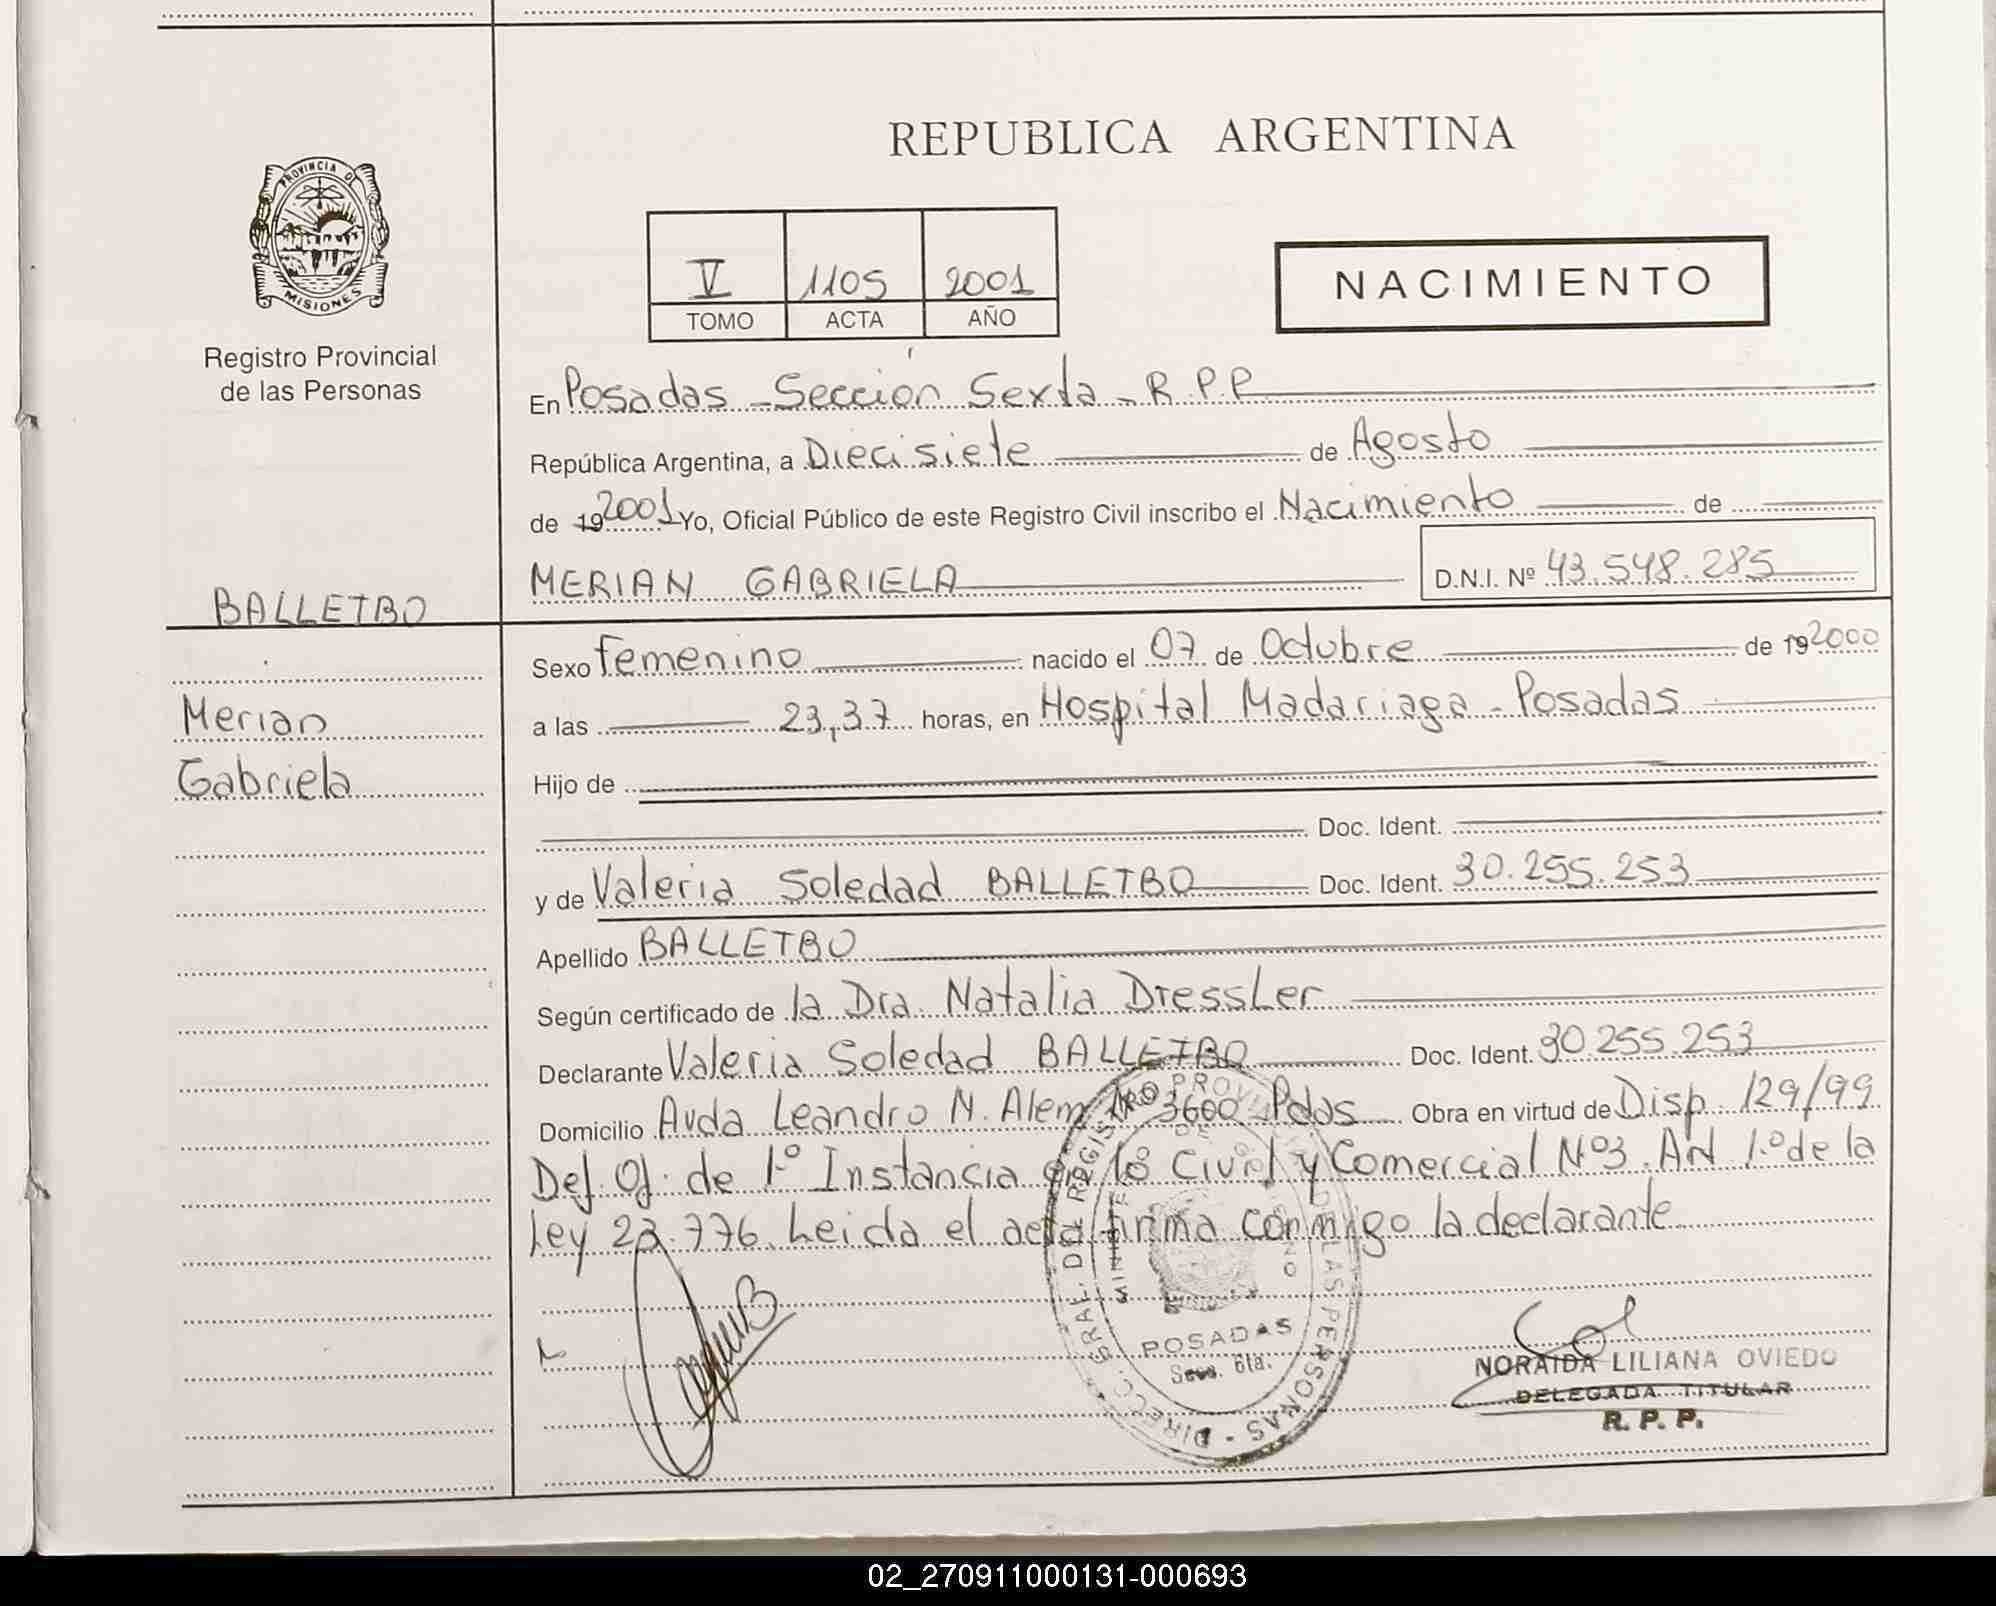 REPUBLICA ARGENTINA
PROVINCIA DE
MISIONES
Registro Provincial
de las Personas
V 1105 2001
TOMO ACTA AÑO
NACIMIENTO
En Posadas - Sección Sexta - R.P.P
República Argentina, a Diecisiete de Agosto
de 19 2001 Yo, Oficial Público de este Registro Civil inscribo el Nacimiento de
MERIAN GABRIELA D.N.I. Nº 43.548.285
BALLETBO
Merian
Gabriela
Sexo Femenino nacido el 07 de Octubre de 19 2000
a las 23,37 horas, en Hospital Madariaga - Posadas
Hijo de
Doc. Ident.
y de Valeria Soledad BALLETBO Doc. Ident. 30.255.253
Apellido BALLETBO
Según certificado de la Dra. Natalia Dressler
Declarante Valeria Soledad BALLETBO Doc. Ident. 30.255.253
Domicilio Avda Leandro N. Alem Nro 3600 Pdas Obra en virtud de Disp. 129/99
Def. Of. de 1º Instancia en lo Civil y Comercial Nº3. Art 1.º de la
Ley 23.776. Leida el acta firma conmigo la declarante
DIRECC. GRAL. DEL REGISTRO PROVINCIAL DE LAS PERSONAS
POSADAS
Secc. 6ta.
NORAIDA LILIANA OVIEDO
DELEGADA TITULAR
R. P. P.
02_270911000131-000693